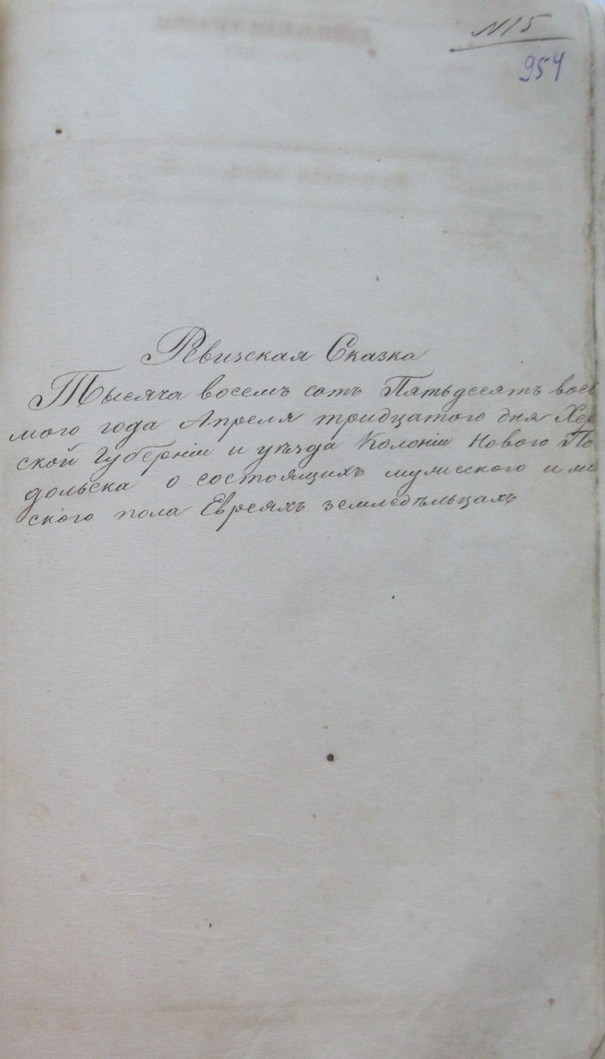 N 15
954
Ревизская Сказка
Тысяча восемъ сотъ Пятьдесятъ вось
мого года Апреля тридцатого дня Хер
ской Губерніи и уѣзда Колоніи Нового По
дольска о состоящихъ мужсского и же
ского пола Евреяхъ земледѣльцахъ